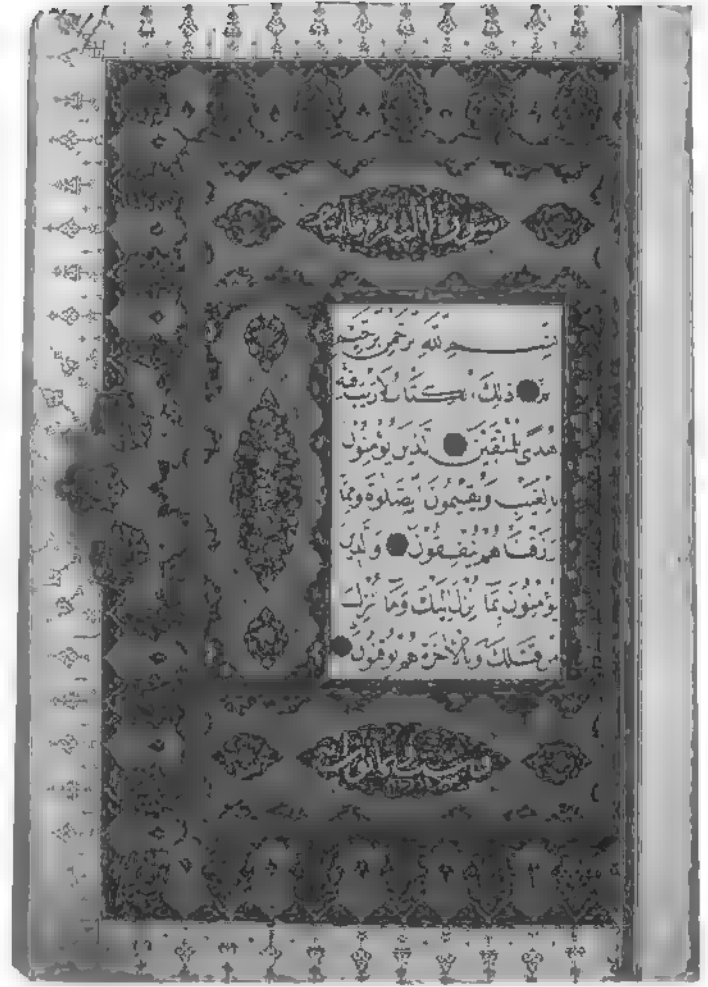 سورة البقرة مائتا
بسم الله الرحمن الرحيم
الم ذلك الكتاب لا ريب فيه
هدى للمتقين الذين يؤمنون
بالغيب ويقيمون الصلوة ومما
رزقناهم ينفقون والذين
يؤمنون بما انزل اليك وما انزل
من قبلك وبالآخرة هم يوقنون